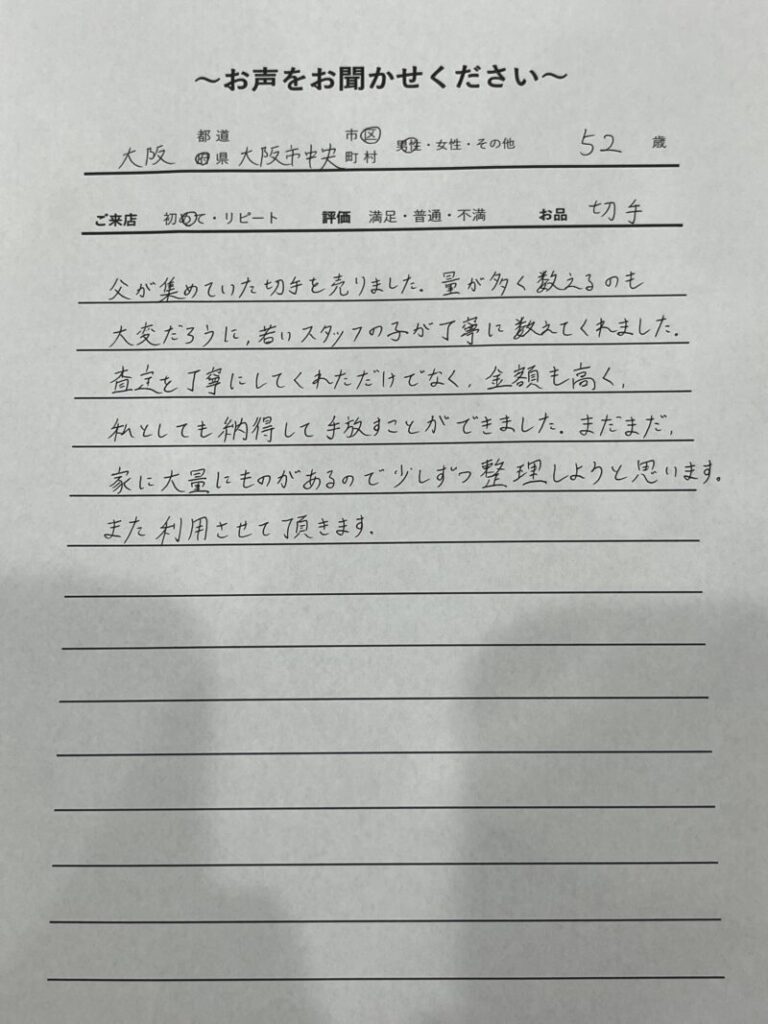 ～お声をお聞かせください～
大阪 都道府県 大阪市中央 市区町村 男性・女性・その他 52 歳
ご来店 初めて・リピート 評価 満足・普通・不満 お品 切手
父が集めていた切手を売りました。量が多く数えるのも
大変だろうに、若いスタッフの子が丁寧に数えてくれました。
査定を丁寧にしてくれただけでなく、金額も高く、
私としても納得して手放すことができました。まだまだ、
家に大量にものがあるので少しずつ整理しようと思います。
また利用させて頂きます。